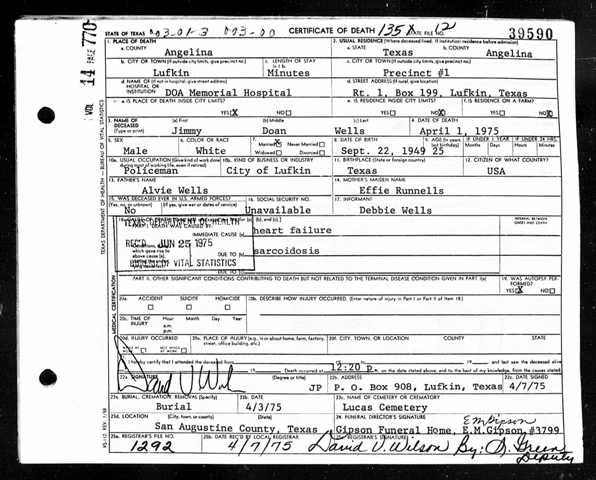 STATE OF TEXAS 003-01-3 003-00 CERTIFICATE OF DEATH 135 STATE FILE NO. 12 39590
VOL 14 PAGE 770
TEXAS DEPARTMENT OF HEALTH — BUREAU OF VITAL STATISTICS
1. PLACE OF DEATH
2. USUAL RESIDENCE (Where deceased lived. If institution: residence before admission)
a. COUNTY Angelina a. STATE Texas b. COUNTY Angelina
b. CITY OR TOWN (If outside city limits, give precinct no.) c. LENGTH OF STAY in 1 b c. CITY OR TOWN (If outside city limits, give precinct no.)
Lufkin Minutes Precinct #1
d. NAME OF (If not in hospital, give street address) HOSPITAL OR INSTITUTION d. STREET ADDRESS (If rural, give location)
DOA Memorial Hospital Rt. 1, Box 199, Lufkin, Texas
e. IS PLACE OF DEATH INSIDE CITY LIMITS? e. IS RESIDENCE INSIDE CITY LIMITS? f. IS RESIDENCE ON A FARM?
YES X NO YES NO X YES NO X
3. NAME OF DECEASED (Type or print) (a) First (b) Middle (c) Last 4. DATE OF DEATH
Jimmy Doan Wells April 1, 1975
5. SEX 6. COLOR OR RACE 7. Married X Never Married Widowed Divorced 8. DATE OF BIRTH 9. AGE (In years last birthday) IF UNDER 1 YEAR Months Days IF UNDER 24 HRS. Hours Min.
Male White Sept. 22, 1949 25
10a. USUAL OCCUPATION (Give kind of work done 10b. KIND OF BUSINESS OR INDUSTRY 11. BIRTHPLACE (State or foreign country) 12. CITIZEN OF WHAT COUNTRY?
Policeman City of Lufkin Texas USA
13. FATHER'S NAME 14. MOTHER'S MAIDEN NAME
Alvie Wells Effie Runnells
15. WAS DECEASED EVER IN U.S. ARMED FORCES? 16. SOCIAL SECURITY NO. 17. INFORMANT
(Yes, no, or unknown) (If yes, give war or dates of service)
No Unavailable Debbie Wells
TEXAS DEPARTMENT OF HEALTH
REC'D JUN 25 1975
BUREAU OF VITAL STATISTICS
IMMEDIATE CAUSE (a) heart failure
DUE TO sarcoidosis
DUE TO
INTERVAL BETWEEN ONSET AND DEATH
PART II. OTHER SIGNIFICANT CONDITIONS CONTRIBUTING TO DEATH BUT NOT RELATED TO THE TERMINAL DISEASE CONDITION GIVEN IN PART I(a) 19. WAS AUTOPSY PERFORMED?
YES X NO
MEDICAL CERTIFICATION
20a. ACCIDENT SUICIDE HOMICIDE 20b. DESCRIBE HOW INJURY OCCURRED. (Enter nature of injury in Part I or Part II of item 18.)
20c. TIME OF INJURY Hour Month Day Year
a.m.
p.m.
20d. INJURY OCCURRED 20e. PLACE OF INJURY (e.g., in or about home, farm, factory, street, office building, etc.) 20f. CITY, TOWN, OR LOCATION COUNTY STATE
I hereby certify that I attended the deceased from 19 and last saw the deceased alive
Death occurred at 12:20 p. m. on the date stated above, and to the best of my knowledge, from the causes stated.
22a. SIGNATURE (Degree or title) 22b. ADDRESS 22c. DATE SIGNED
David V Wilson JP P. O. Box 908, Lufkin, Texas 4/7/75
23a. BURIAL, CREMATION, REMOVAL (Specify) 23b. DATE 23c. NAME OF CEMETERY OR CREMATORY
Burial 4/3/75 Lucas Cemetery
23d. LOCATION (City, town, or county) (State) 24. FUNERAL DIRECTOR'S SIGNATURE E.M. Gipson
San Augustine County, Texas Gipson Funeral Home, E.M.Gipson, #3799
25a. REGISTRAR'S FILE NO. 25b. DATE REC'D BY LOCAL REGISTRAR 25c. REGISTRAR'S SIGNATURE
1292 4/7/75 David V. Wilson By: Green
Deputy